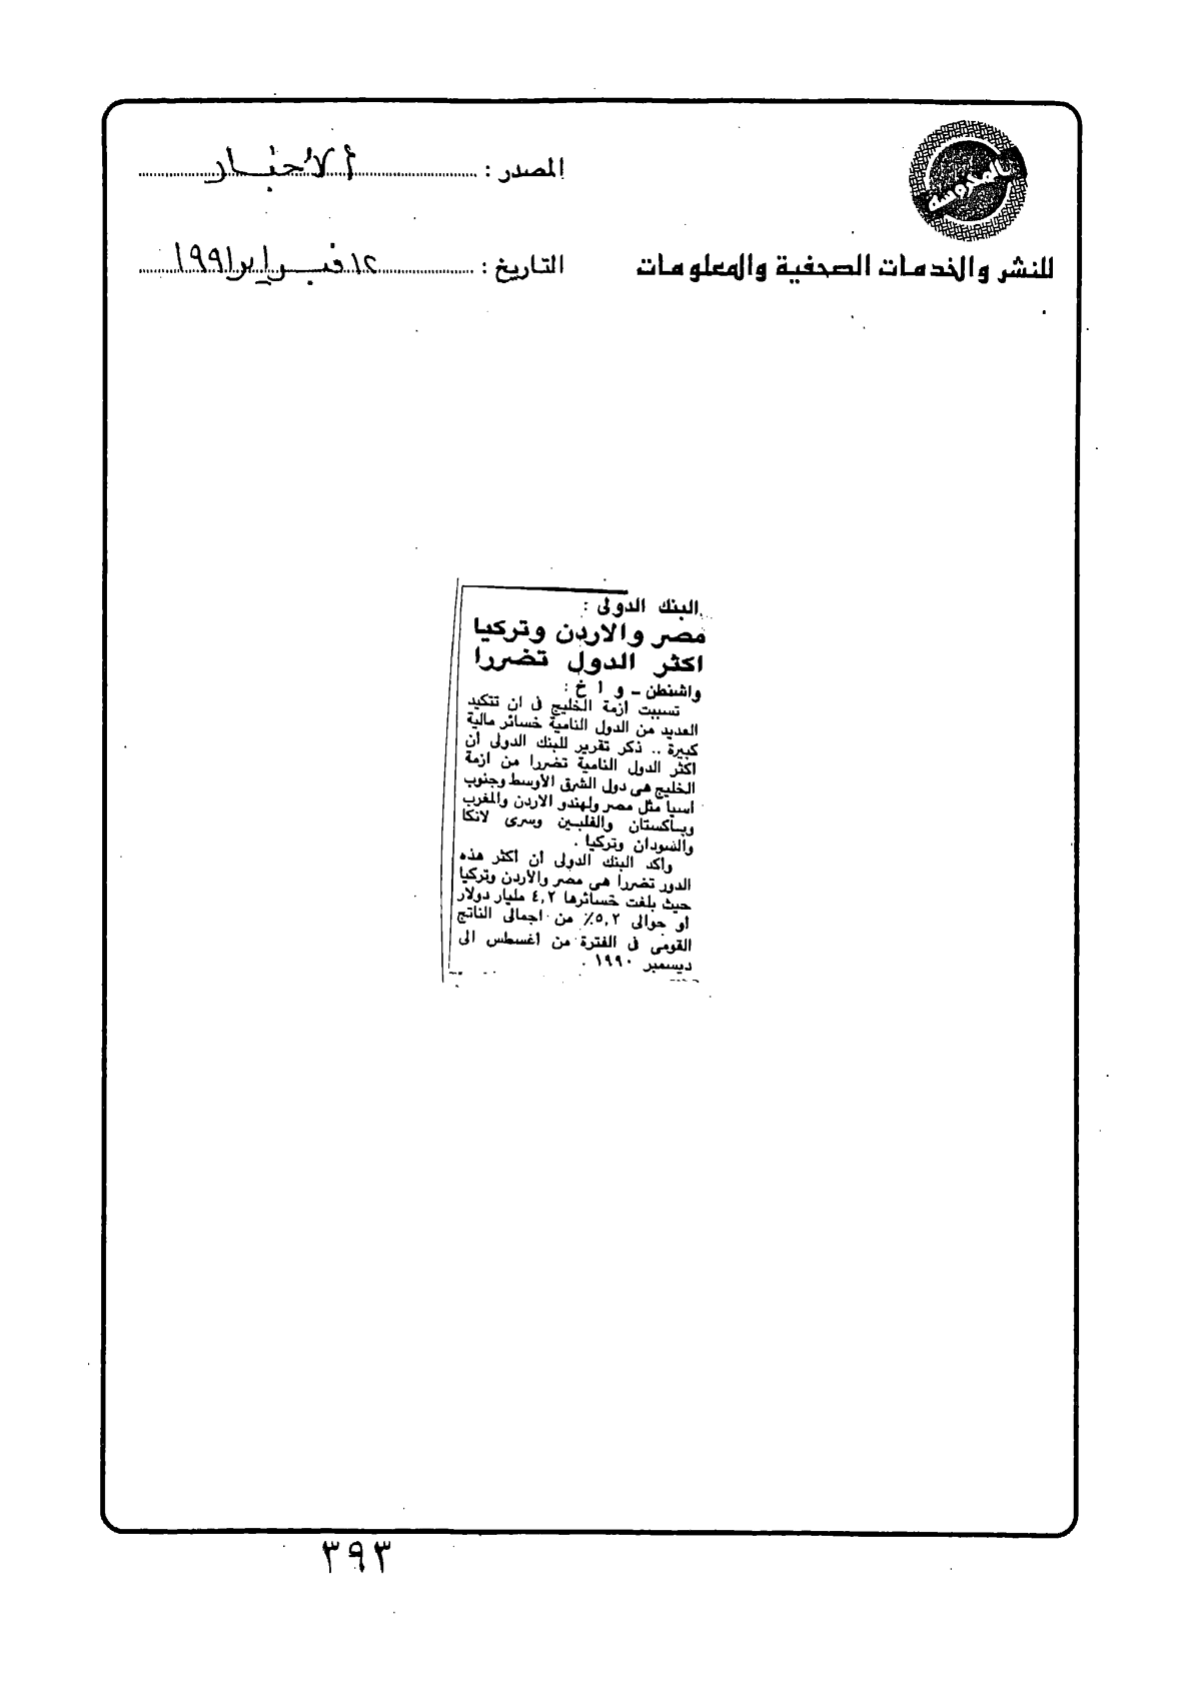 المحروسة
المصدر : الأخبار
للنشر والخدمات الصحفية والمعلومات
التاريخ : ١٢ فبراير ١٩٩١
البنك الدولى :
مصر والاردن وتركيا
اكثر الدول تضررا
واشنطن ـ و ا خ :
تسببت أزمة الخليج فى ان تتكبد
العديد من الدول النامية خسائر مالية
كبيرة .. ذكر تقرير للبنك الدولى أن
اكثر الدول النامية تضررا من ازمة
الخليج هى دول الشرق الأوسط وجنوب
اسيا مثل مصر ولهندو الاردن والمغرب
وباكستان والفلبين وسرى لانكا
والسودان وتركيا .
وأكد البنك الدولى أن اكثر هذه
الدور تضررا هى مصر والأردن وتركيا
حيث بلغت خسائرها ٤,٢ مليار دولار
أو حوالى ٥,٢٪ من اجمالى الناتج
القومى فى الفترة من أغسطس الى
ديسمبر ١٩٩٠ .
٣٩٣